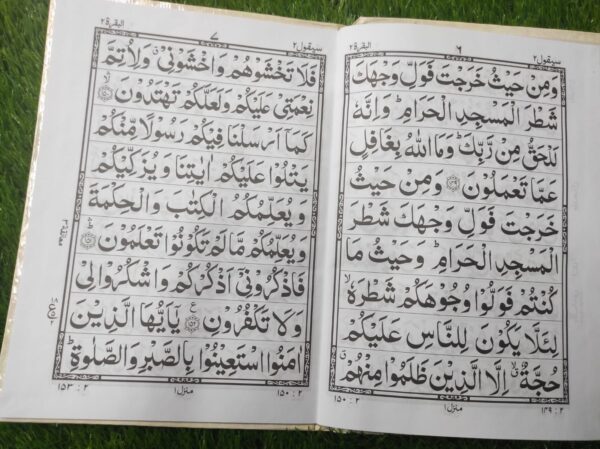 سيقول ٢
٦
البقرة ٢
وَمِنْ حَيْثُ خَرَجْتَ فَوَلِّ وَجْهَكَ
شَطْرَ الْمَسْجِدِ الْحَرَامِ ؕ وَاِنَّهٗ
لَلْحَقُّ مِنْ رَّبِّكَ ؕ وَمَا اللّٰهُ بِغَافِلٍ
عَمَّا تَعْمَلُوْنَ ﴿١٤٩﴾ وَمِنْ حَيْثُ
خَرَجْتَ فَوَلِّ وَجْهَكَ شَطْرَ
الْمَسْجِدِ الْحَرَامِ ؕ وَحَيْثُ مَا
كُنْتُمْ فَوَلُّوْا وُجُوْهَكُمْ شَطْرَهٗ ۙ
لِئَلَّا يَكُوْنَ لِلنَّاسِ عَلَيْكُمْ
حُجَّةٌ ۙ اِلَّا الَّذِيْنَ ظَلَمُوْا مِنْهُمْ ۗ
١٤٩ : ٢
منزل ١
١٥٠ : ٢
سيقول ٢
٧
البقرة ٢
فَلَا تَخْشَوْهُمْ وَاخْشَوْنِيْ ۗ وَلِاُتِمَّ
نِعْمَتِيْ عَلَيْكُمْ وَلَعَلَّكُمْ تَهْتَدُوْنَ ﴿١٥٠﴾ ۙ
كَمَاۤ اَرْسَلْنَا فِيْكُمْ رَسُوْلًا مِّنْكُمْ
يَتْلُوْا عَلَيْكُمْ اٰيٰتِنَا وَيُزَكِّيْكُمْ
وَيُعَلِّمُكُمُ الْكِتٰبَ وَالْحِكْمَةَ
وَيُعَلِّمُكُمْ مَّا لَمْ تَكُوْنُوْا تَعْلَمُوْنَ ﴿١٥١﴾ ؕ
فَاذْكُرُوْنِيْۤ اَذْكُرْكُمْ وَاشْكُرُوْا لِيْ
وَلَا تَكْفُرُوْنِ ﴿١٥٢﴾ يٰۤاَيُّهَا الَّذِيْنَ
اٰمَنُوا اسْتَعِيْنُوْا بِالصَّبْرِ وَالصَّلٰوةِ ؕ
١٥٠ : ٢
منزل ١
١٥٣ : ٢